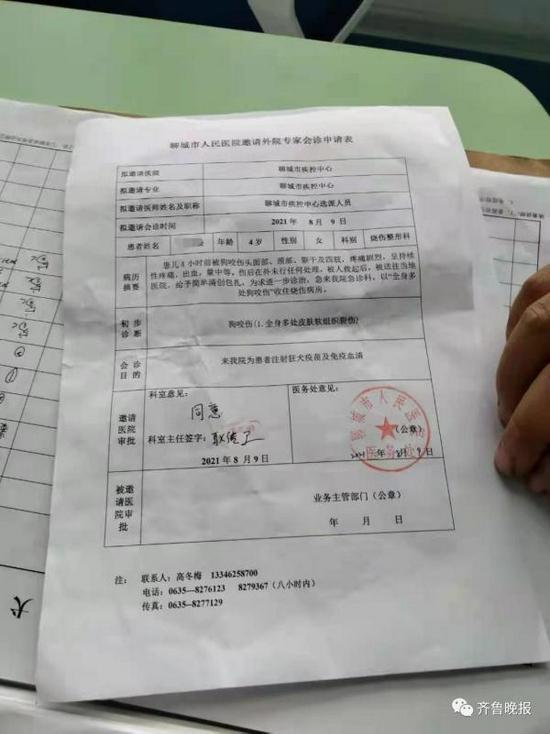 聊城市人民医院邀请外院专家会诊申请表
拟邀请医院 聊城市疾控中心
拟邀请专业 聊城市疾控中心
拟邀请医师姓名及职称 聊城市疾控中心选派人员
拟邀请会诊时间 2021 年 8 月 9 日
患者姓名 年龄 4岁 性别 女 科别 烧伤整形科
病历摘要
患儿 4 小时前被狗咬伤头面部、颈部、躯干及四肢，疼痛剧烈，呈持续
性疼痛，出血，量中等，伤后在外未行任何处理，被人救起后，被送往当地
医院，给予简单清创包扎，为求进一步诊治，急来我院急诊科，以“全身多
处狗咬伤”收住烧伤病房。
初步诊断
狗咬伤(1.全身多处皮肤软组织裂伤)
会诊目的
来我院为患者注射狂犬疫苗及免疫血清
邀请医院审批
科室意见：
同意
科室主任签字：
2021 年 8 月 9 日
医务处意见：
聊城市人民医院
医务处
（公章）
2021 年 8 月 9 日
被邀请医院审批
业务主管部门（公章）
年 月 日
注： 联系人：高冬梅 13346258700
电话：0635—8276123 8279367（八小时内）
传真：0635—8277129
犬
齐鲁晚报